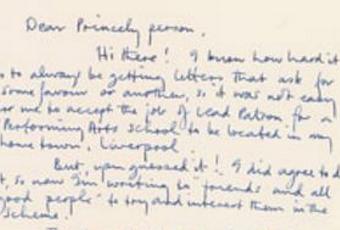 Dear Princely person,
Hi there! I know how hard it
is to always be getting letters that ask for
some favour or another, so it was not easy
for me to accept the job of Lead Patron for a
Performing Arts school to be located in my
home town, Liverpool
But, you guessed it! I did agree to d
it, so now I'm writing to "friends and all
good people" to try and interest them in the
scheme.